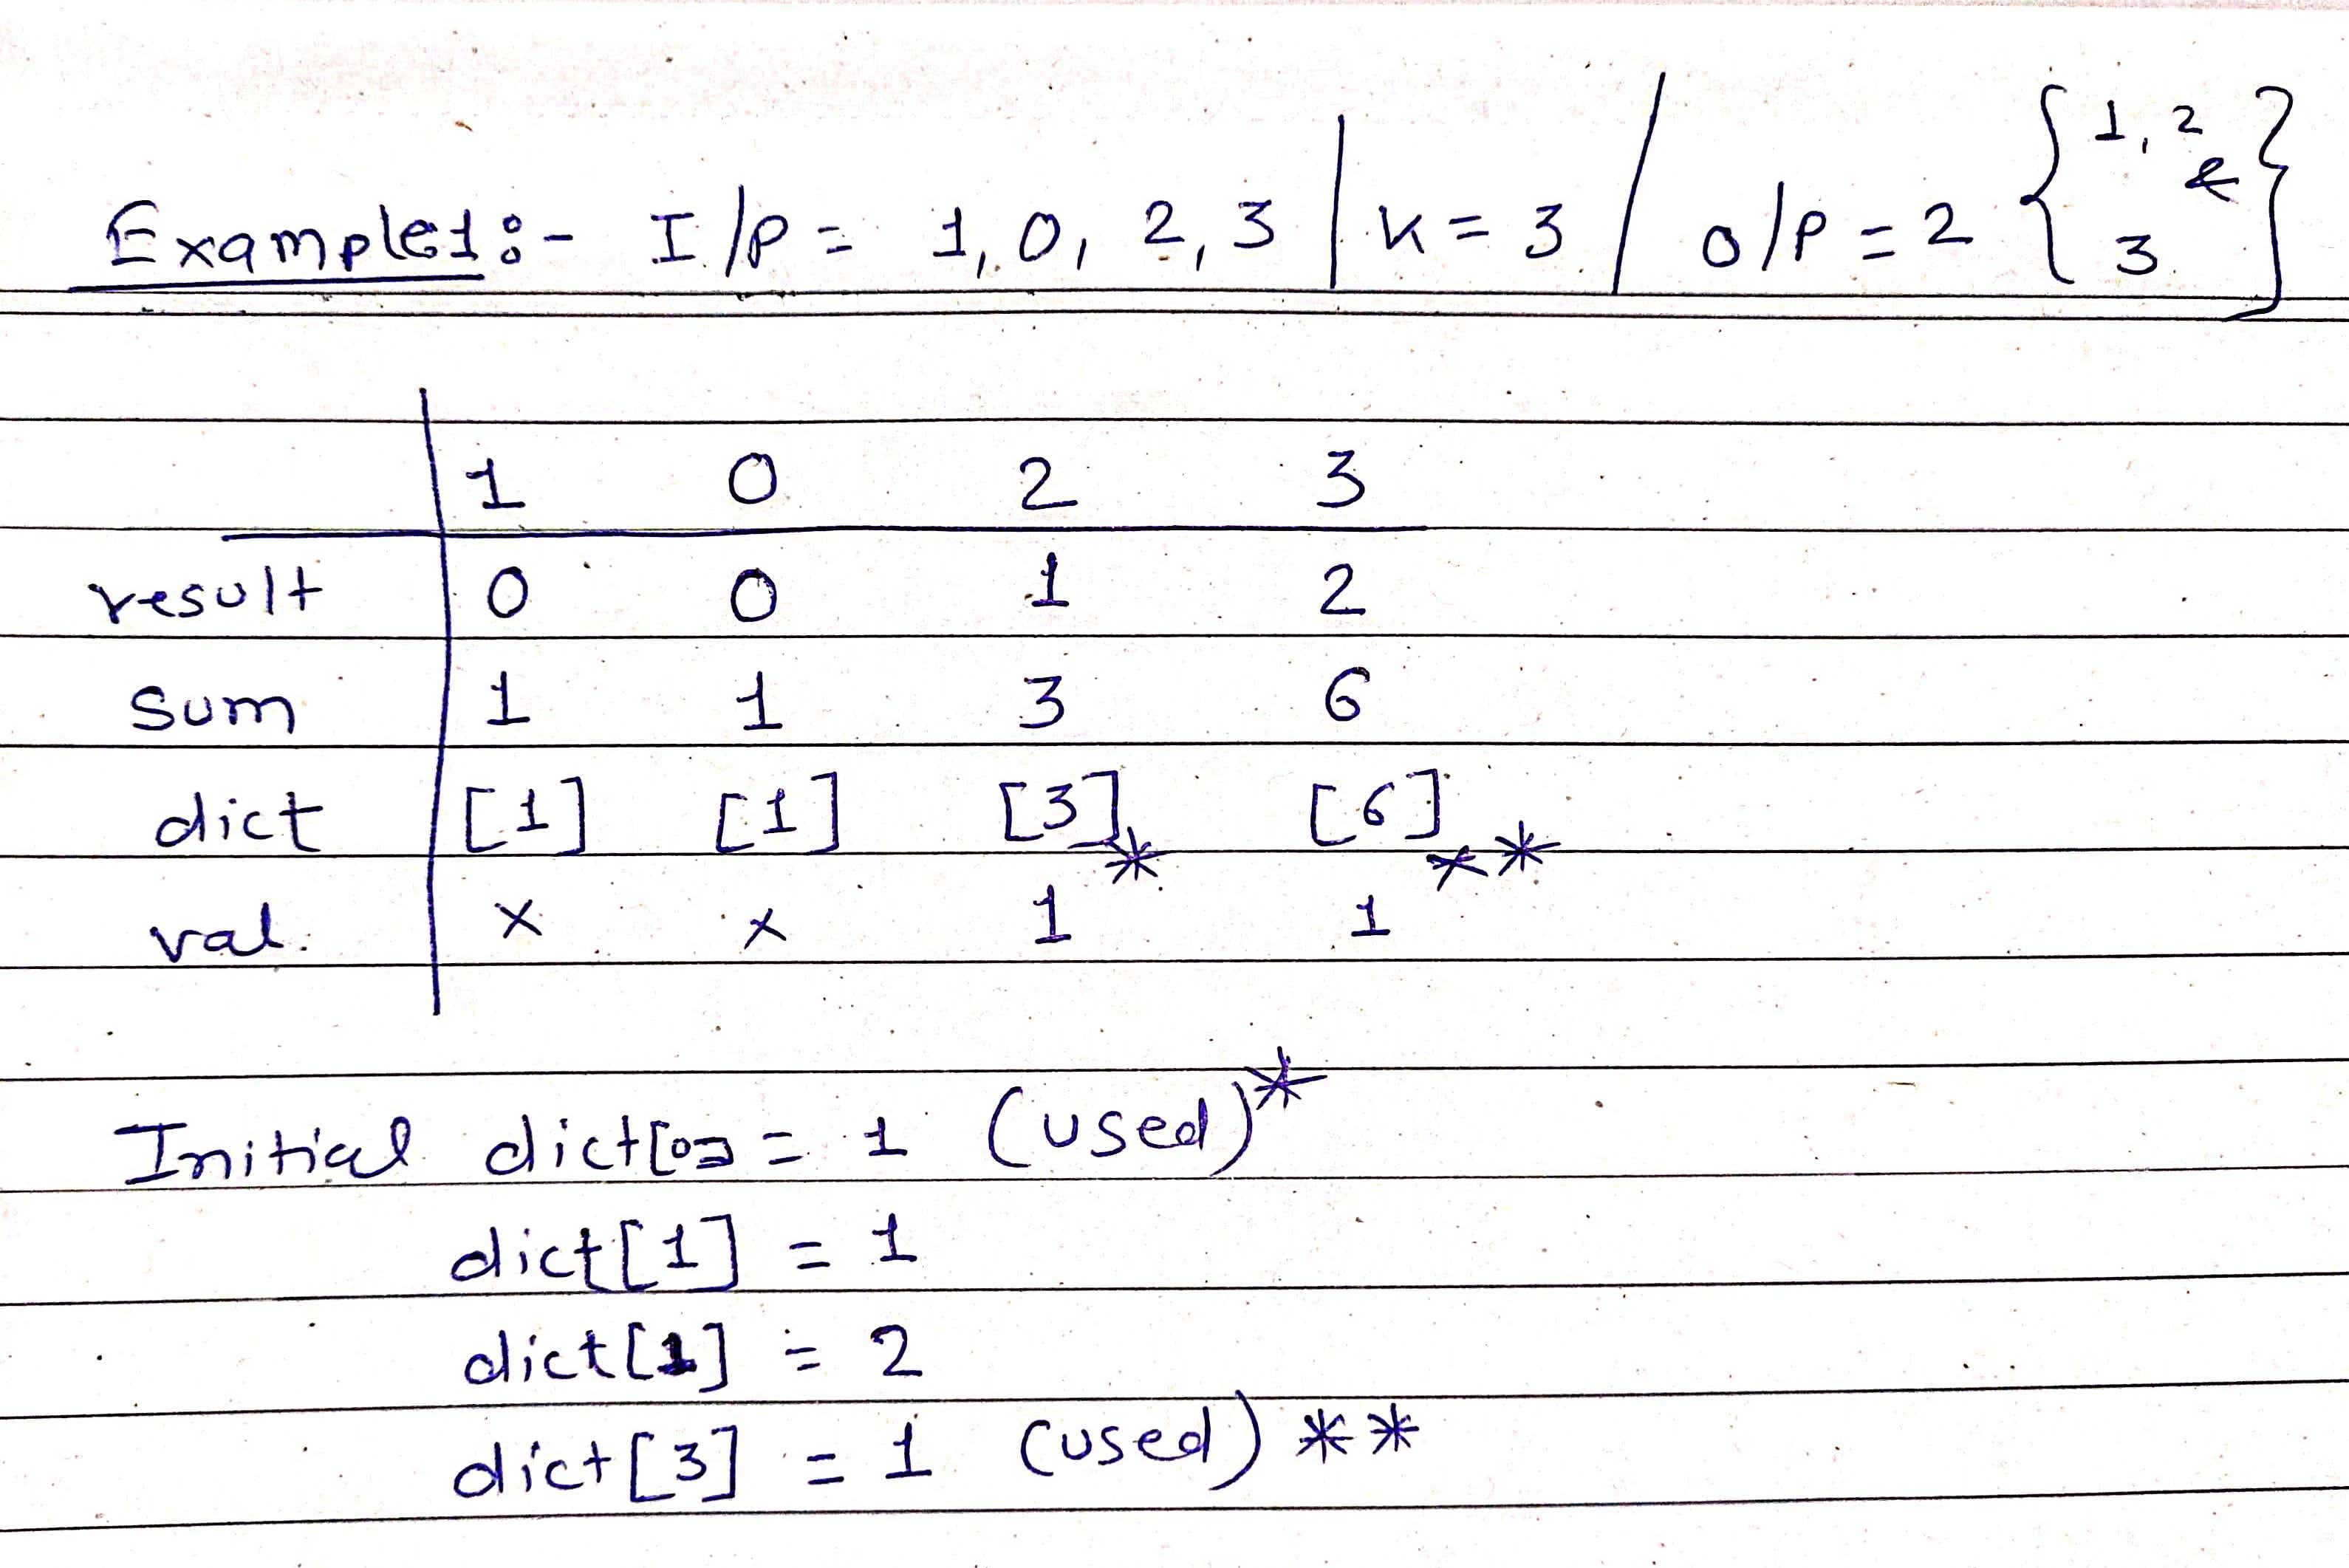 Example1:- I/P = 1, 0, 2, 3 | K = 3 / O/P = 2 { 1, 2 & 3 }
1 0 2 3
result 0 0 1 2
sum 1 1 3 6
dict [1] [1] [3]* [6]**
val. x x 1 1
Initial dict[0] = 1 (used)*
dict[1] = 1
dict[1] = 2
dict[3] = 1 (used)**